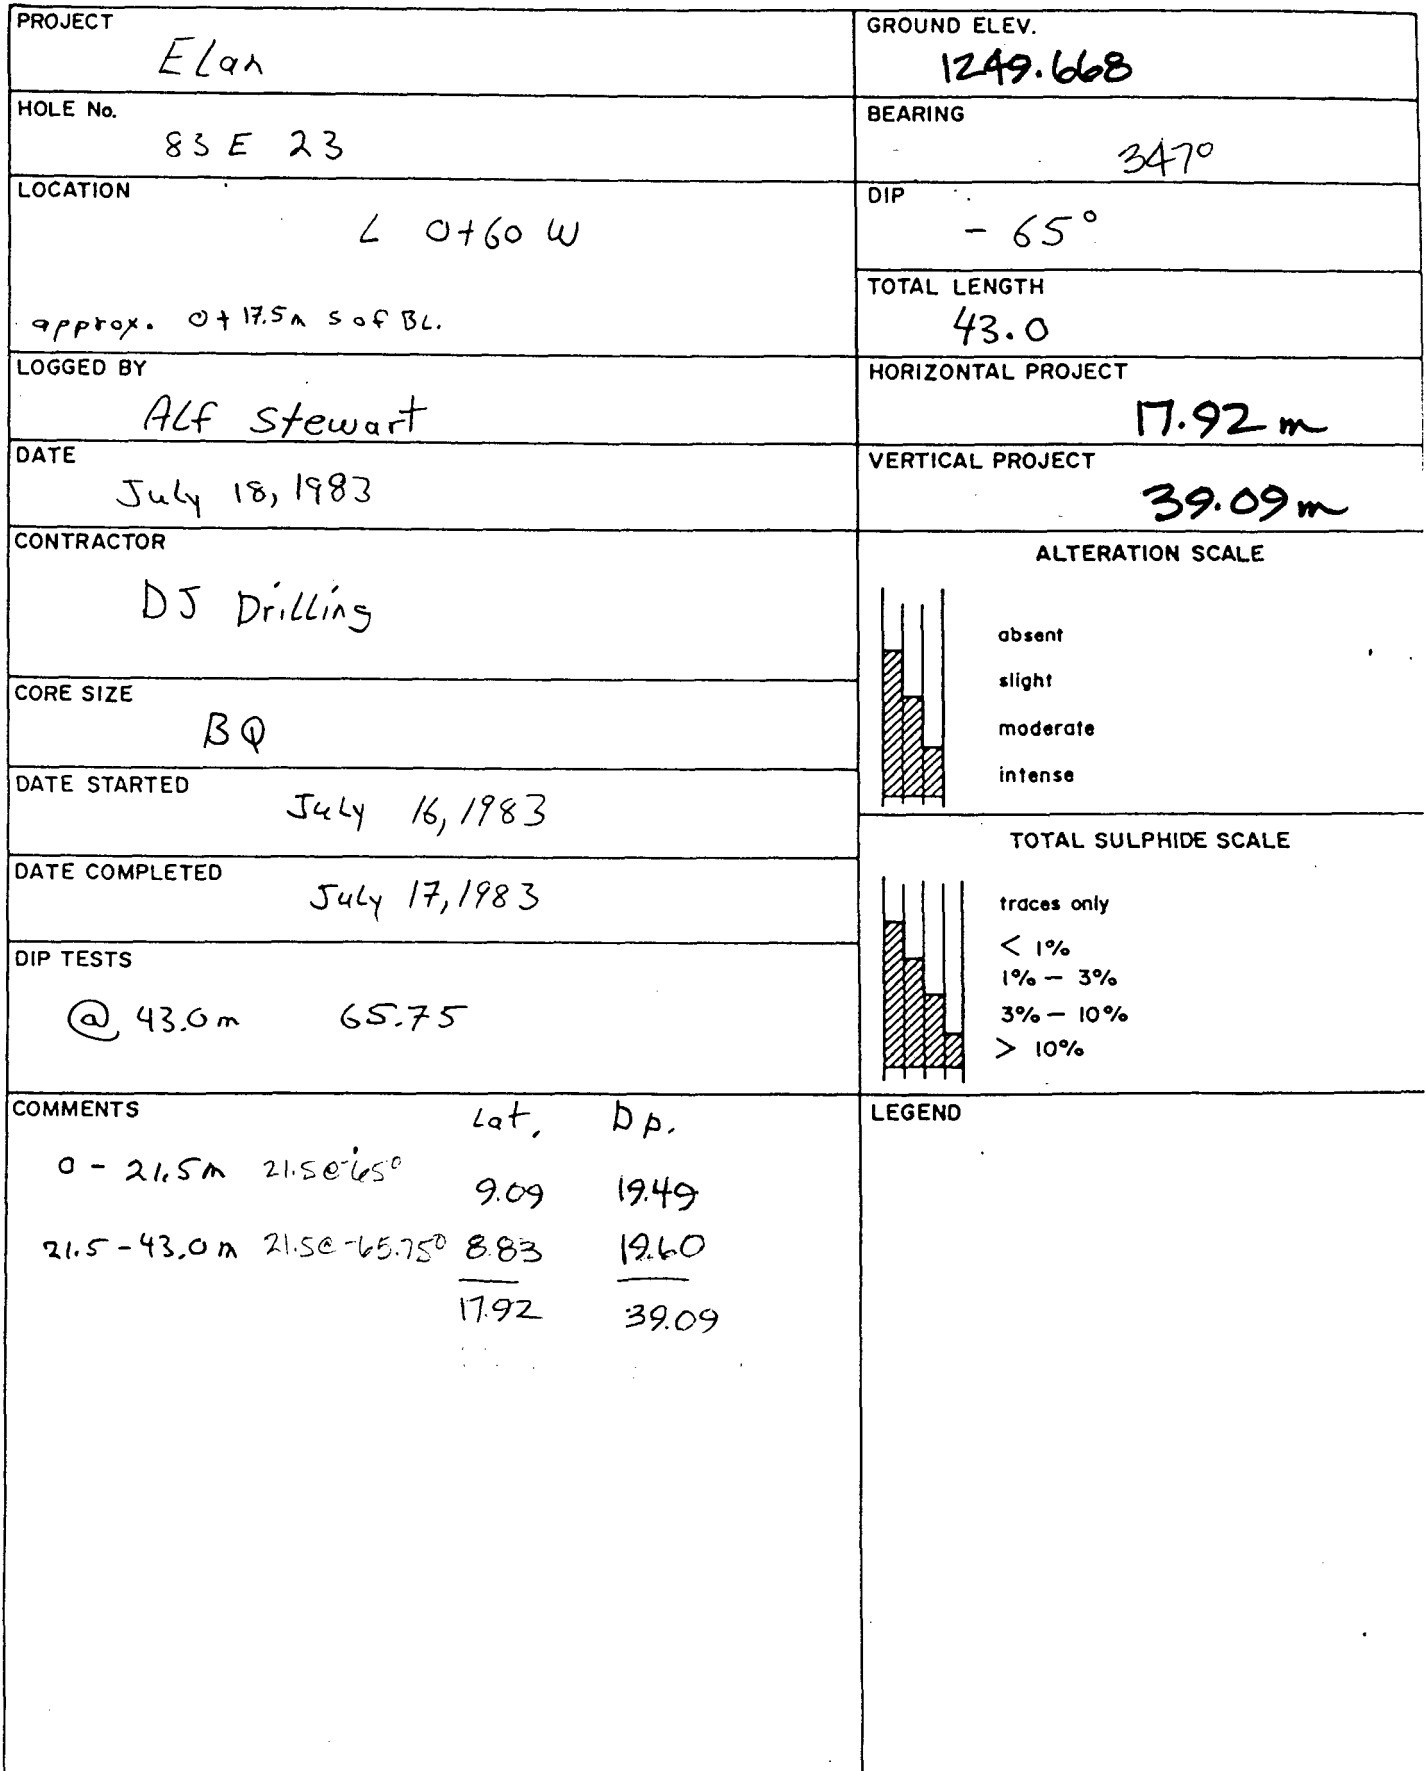 PROJECT
Elan
HOLE No.
83 E 23
LOCATION
L 0+60 W
approx. 0+17.5m S of BL.
LOGGED BY
Alf Stewart
DATE
July 18, 1983
CONTRACTOR
DJ Drilling
CORE SIZE
BQ
DATE STARTED
July 16, 1983
DATE COMPLETED
July 17, 1983
DIP TESTS
@ 43.0m 65.75
COMMENTS
Lat. Dp.
0 - 21.5m 21.5@-65° 9.09 19.49
21.5 - 43.0m 21.5@-65.75° 8.83 19.60
17.92 39.09
GROUND ELEV.
1249.668
BEARING
347°
DIP
- 65°
TOTAL LENGTH
43.0
HORIZONTAL PROJECT
17.92 m
VERTICAL PROJECT
39.09 m
ALTERATION SCALE
absent
slight
moderate
intense
TOTAL SULPHIDE SCALE
traces only
< 1%
1% – 3%
3% – 10%
> 10%
LEGEND